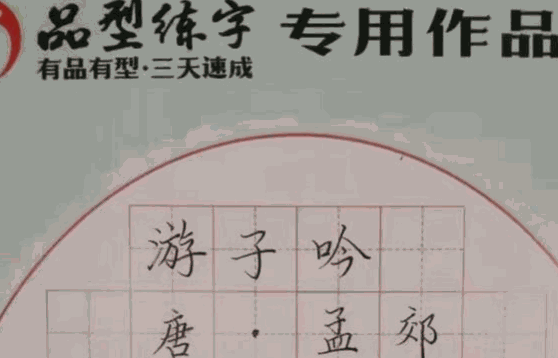 品型练字 专用作品
有品有型·三天速成
游子吟
唐·孟郊